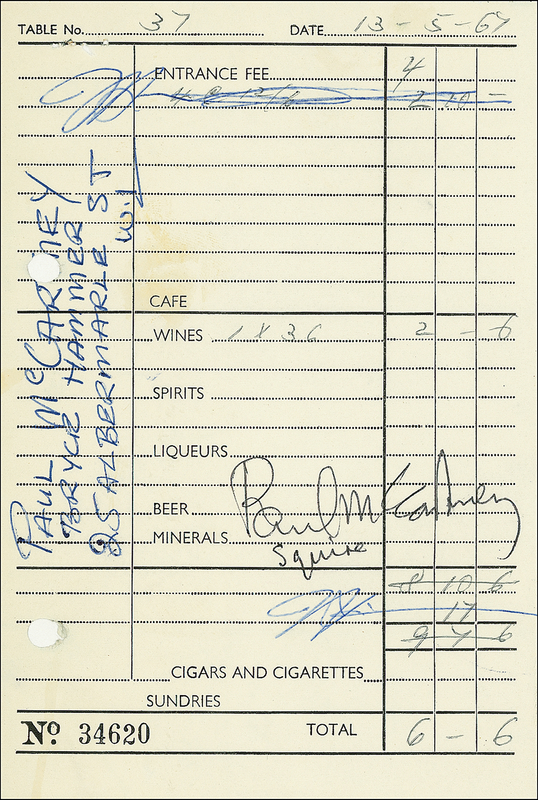 TABLE No. 37 DATE 13-5-67
ENTRANCE FEE 4
2 10 -
CAFE
WINES 1 X 36 2 - 6
SPIRITS
LIQUEURS
BEER
MINERALS
Paul McCartney
Squire
8 10 6
17
9 7 6
CIGARS AND CIGARETTES
SUNDRIES
No. 34620 TOTAL 6 - 6
PAUL McCARTNEY
BRYCE HAMMER
25 ALBERMARLE ST
W.1